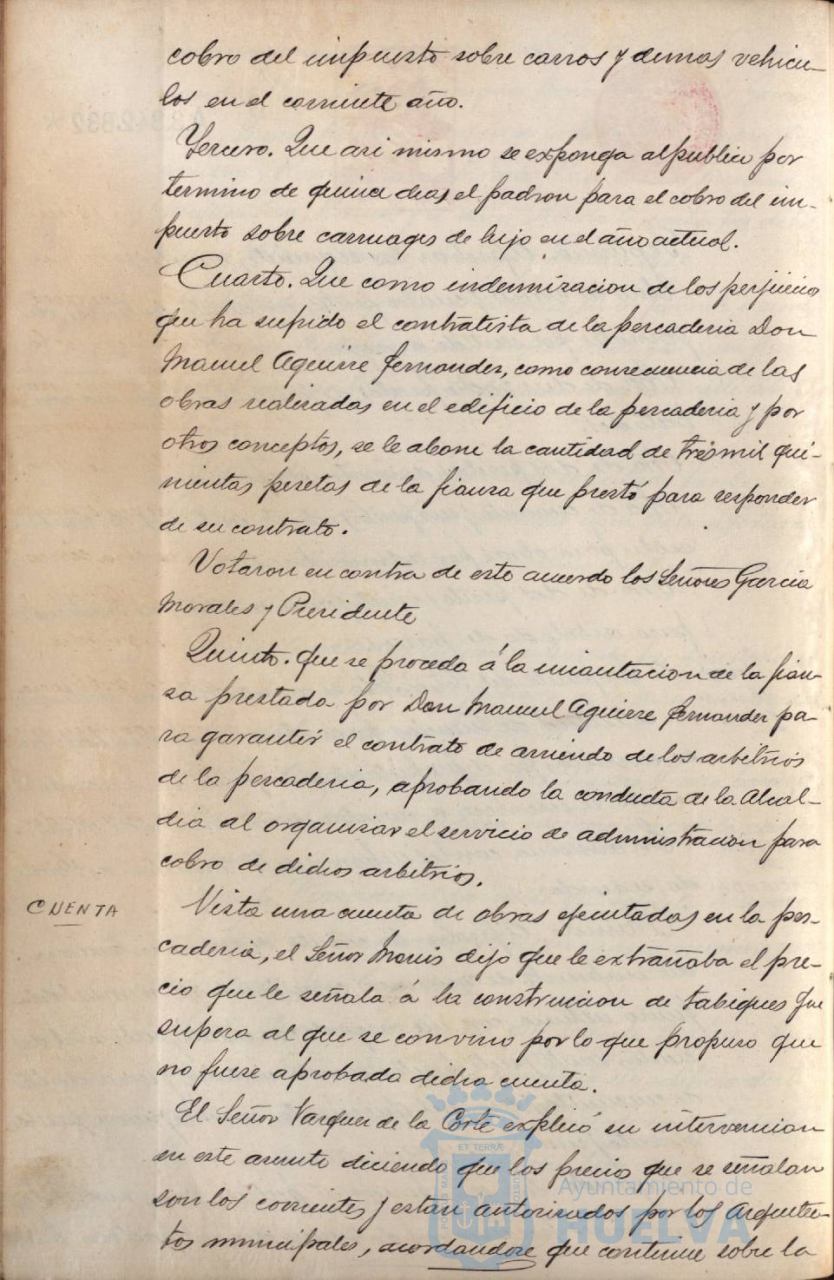 cobro del impuesto sobre carros y demas vehicu-
los en el corriente año.
Tercero. Que asi mismo se exponga al publico por
termino de quince dias el padron para el cobro del im-
puesto sobre carruages de lujo en el año actual.
Cuarto. Que como indemnizacion de los perjuicios
que ha sufrido el contratista de la pescaderia Don
Manuel Aguirre Fernandez, como consecuencia de las
obras realizadas en el edificio de la pescaderia y por
otros conceptos, se le abone la cantidad de tres mil qui-
nientas pesetas de la fianza que prestó para responder
de su contrato.
Votaron en contra de este acuerdo los Señores Garcia
Morales y Presidente
Quinto. Que se proceda á la incautacion de la fian-
za prestada por Don Manuel Aguirre Fernandez pa-
ra garantir el contrato de arriendo de los arbitrios
de la pescaderia, aprobando la conducta de la Alcal-
dia al organizar el servicio de administracion para
cobro de dichos arbitrios.
CUENTA
Vista una cuenta de obras ejecutadas en la pes-
caderia, el Señor dijo que le extrañaba el pre-
cio que le señala á la construcion de tabiques que
supera al que se convino por lo que propuso que
no fuese aprobada dicha cuenta.
El Señor Vazquez de la Corte explicó su intervencion
en este asunto diciendo que los precio que se señalan
son los corrientes y estan autorizados por los Arquitec-
tos municipales, acordandose que continue sobre la
Ayuntamiento de
HUELVA